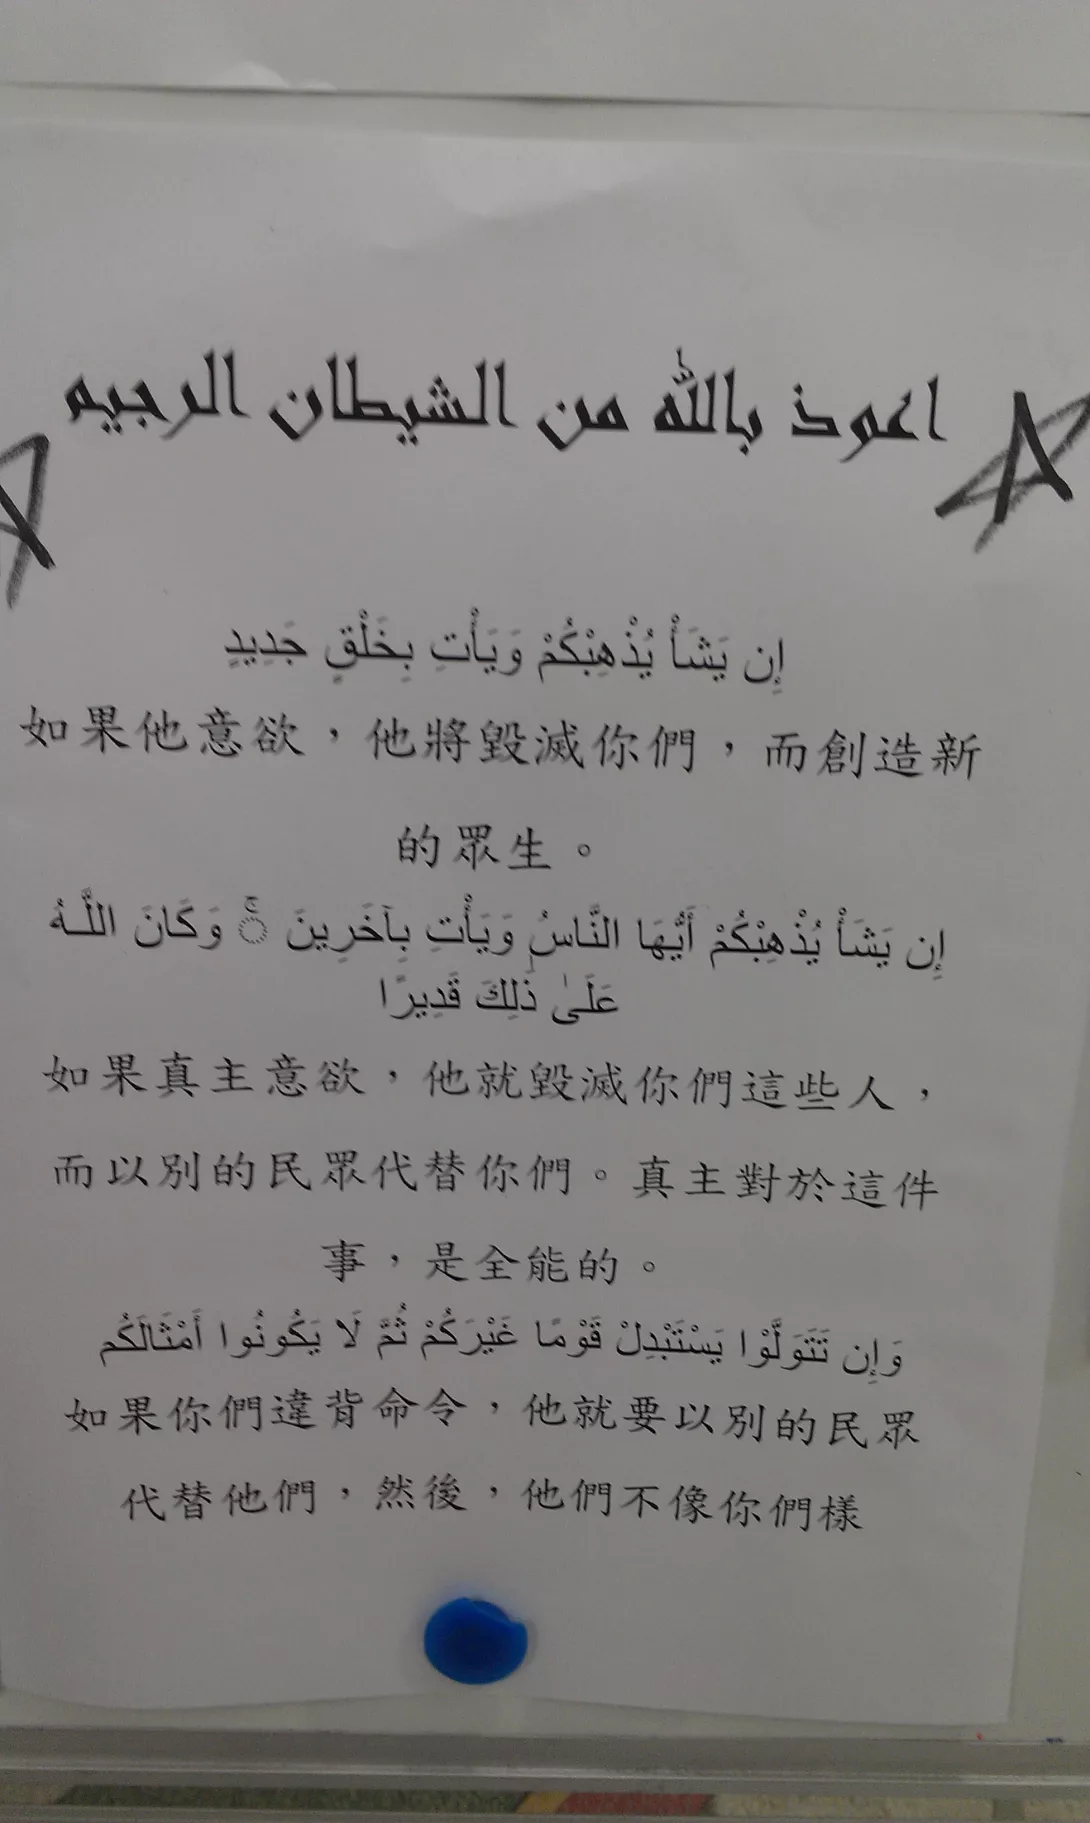 اعوذ بالله من الشيطان الرجيم
إِن يَشَأْ يُذْهِبْكُمْ وَيَأْتِ بِخَلْقٍ جَدِيدٍ
如果他意欲，他將毀滅你們，而創造新
的眾生。
إِن يَشَأْ يُذْهِبْكُمْ أَيُّهَا النَّاسُ وَيَأْتِ بِآخَرِينَ ۚ وَكَانَ اللَّـهُ
عَلَىٰ ذَٰلِكَ قَدِيرًا
如果真主意欲，他就毀滅你們這些人，
而以別的民眾代替你們。真主對於這件
事，是全能的。
وَإِن تَتَوَلَّوْا يَسْتَبْدِلْ قَوْمًا غَيْرَكُمْ ثُمَّ لَا يَكُونُوا أَمْثَالَكُم
如果你們違背命令，他就要以別的民眾
代替他們，然後，他們不像你們樣